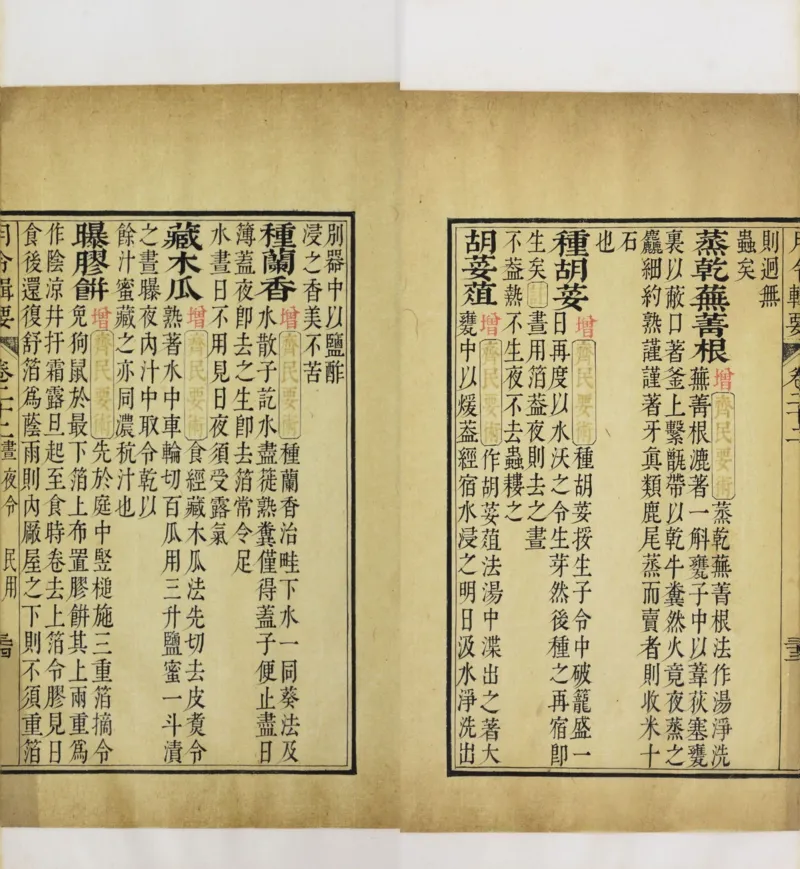 月令輯要 卷二十二
則迥無
蟲矣
蒸乾蕪菁根 增 齊民要術 蒸乾蕪菁根法作湯淨洗
蕪菁根漉著一斛甕子中以葦荻塞甕
裏以蔽口著釜上繫甑帶以乾牛糞然火竟夜蒸之
麤細約熟謹謹著牙眞類鹿尾蒸而賣者則收米十
石
也
種胡荽 增 齊民要術 種胡荽挼生子令中破籠盛一
日再度以水沃之令生芽然後種之再宿卽
生矣 晝用箔葢夜則去之晝
不葢熱不生夜不去蟲耬之
胡荽葅 增 齊民要術 作胡荽葅法湯中渫出之著大
甕中以煖葢經宿水浸之明日汲水淨洗出
別器中以鹽酢
浸之香美不苦
種蘭香 增 齊民要術 種蘭香治畦下水一同葵法及
水散子訖水盡簁熟糞僅得蓋子便止晝日
薄蓋夜卽去之生卽去箔常令足
水晝日不用見日夜須受露氣
藏木瓜 增 齊民要術 食經藏木瓜法先切去皮煑令
熟著水中車輪切百瓜用三升鹽蜜一斗漬
之晝曝夜內汁中取令乾以
餘汁蜜藏之亦同濃杬汁也
曝膠餅 增 齊民要術 先於庭中竪槌施三重箔摘令
免狗鼠於最下箔上布置膠餅其上兩重爲
作陰涼幷扞霜露旦起至食時卷去上箔令膠見日
食後還復舒箔爲蔭雨則內厰屋之下則不須重箔
月令輯要 卷二十二 晝夜令 民用